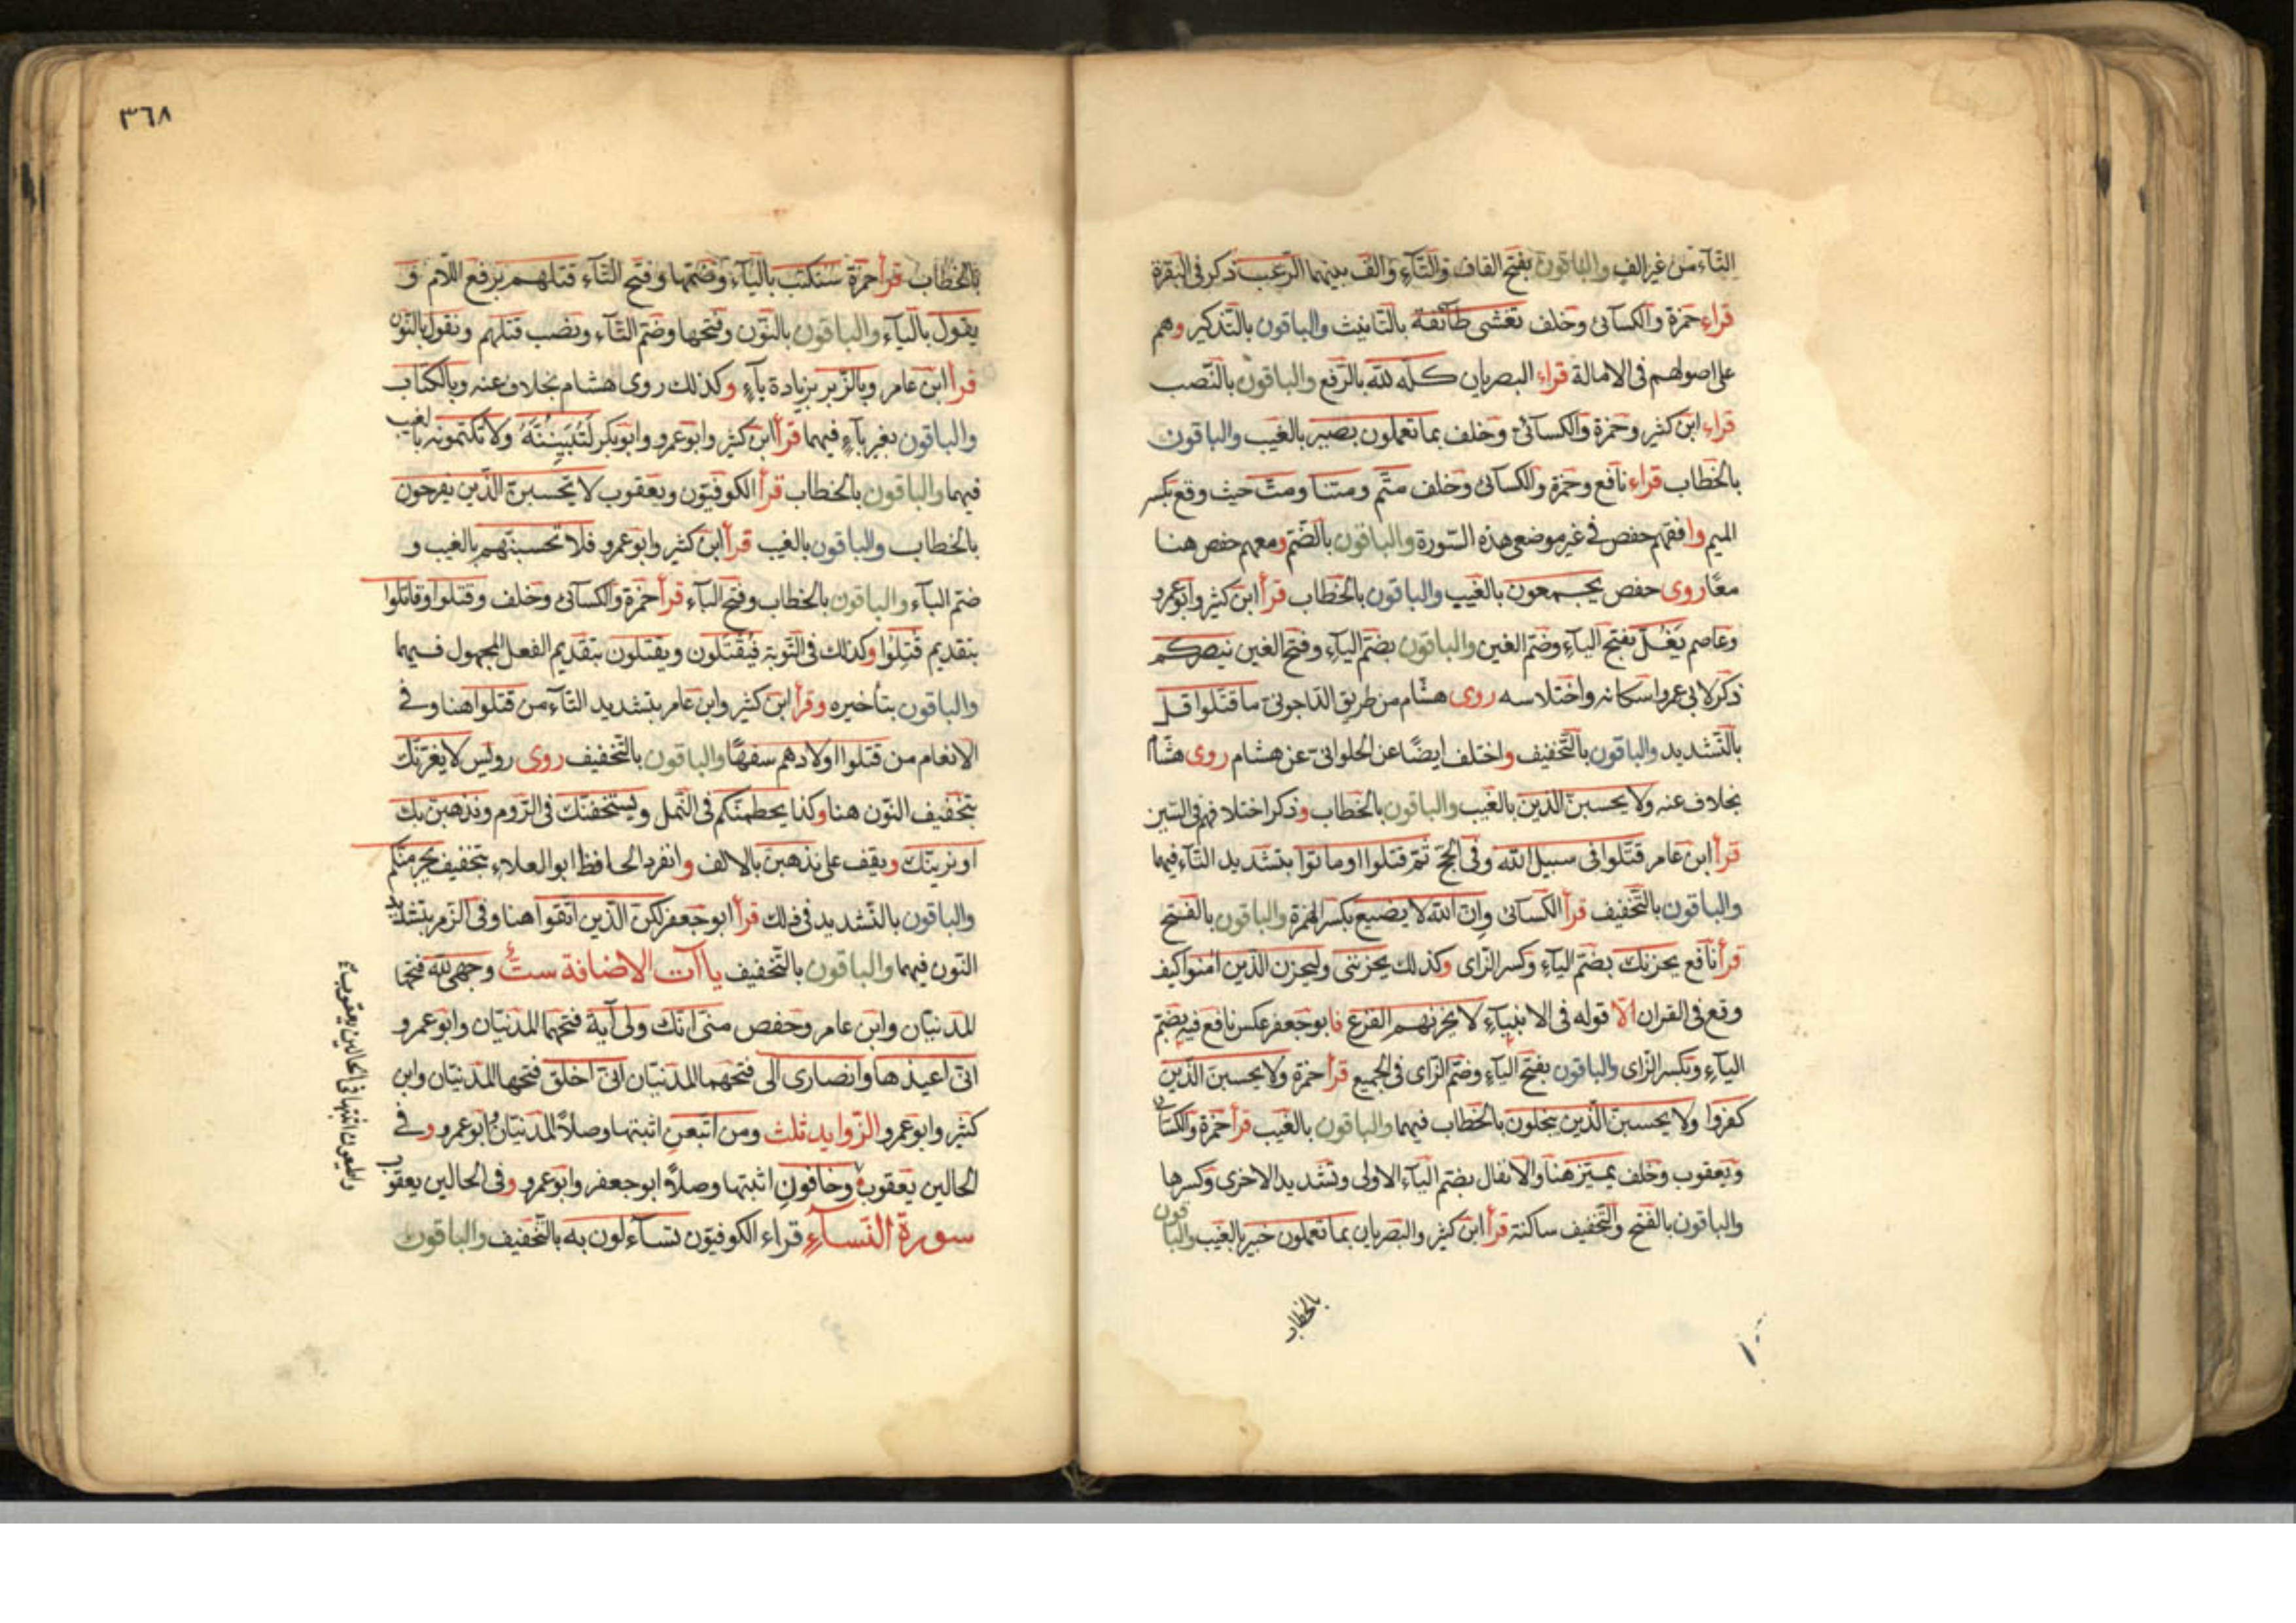 التآء من غير الف والباقون بفتح القاف والتآء والف بينهما الرعب ذكر في البقرة
قراء حمزة والكسآئى وخلف تغشى طآئفة بالتانيث والباقون بالتذكير وهم
على اصولهم فى الامالة قراء البصريان كله لله بالرفع والباقون بالنصب
قراء ابن كثير وحمزة والكسآئى وخلف بما تعملون بصير بالغيب والباقون
بالخطاب قراء نافع وحمزة والكسآئى وخلف متم ومتنا ومت حيث وقع بكسر
الميم وافقهم حفص فى غير موضعى هذه السورة والباقون بالضم ومعهم حفص هنا
معًا روى حفص يجمعون بالغيب والباقون بالخطاب قرأ ابن كثير وابو عمرو
وعاصم يَغُلّ بفتح اليآء وضم الغين والباقون بضم اليآء وفتح الغين ينصركم
ذكر لابى عمرو اسكانه واختلاسه روى هشام من طريق الداجونى ما قتلوا قل
بالتشديد والباقون بالتخفيف واختلف ايضًا عن الحلوانى عن هشام روى هشام
بخلاف عنه ولا يحسبن الذين بالغيب والباقون بالخطاب وذكر اختلافهم فى السين
قرأ ابن عامر قتلوا فى سبيل الله وفى الحج ثم قتلوا او ماتوا بتشديد التآء فيهما
والباقون بالتخفيف قرأ الكسائى وان الله لا يضيع بكسر الهمزة والباقون بالفتح
قرأ نافع يحزنك بضم اليآء وكسر الزاى وكذلك يحزننى وليحزن الذين امنوا كيف
وقع فى القران الا قوله فى الانبيآء لا يحزنهم الفزع فابو جعفر عكس نافع فيه بضم
اليآء وبكسر الزاى والباقون بفتح اليآء وضم الزاى فى الجميع قرأ حمزة ولا يحسبن الذين
كفروا ولا يحسبن الذين يبخلون بالخطاب فيهما والباقون بالغيب قرأ حمزة والكسائى
ويعقوب وخلف يميز هنا والانفال بضم اليآء الاولى وتشديد الاخرى وكسرها
والباقون بالفتح والتخفيف ساكنة قرأ ابن كثير والبصريان بما تعملون خبير بالغيب والباقون
بالخطاب
٣٦٨
بالخطاب قرأ حمزة سنكتب باليآء وضمها وفتح التآء قتلهم برفع اللام و
يقول باليآء والباقون بالنون وفتحها وضم التآء ونصب قتلهم ونقول بالنون
قرأ ابن عامر وبالزبر بزيادة بآء وكذلك روى هشام بخلاف عنه وبالكتاب
والباقون بغير بآء فيهما قرأ ابن كثير وابو عمرو وابو بكر لَتُبَيِّنُنَّهُ ولا تكتمونه بالغيب
فيهما والباقون بالخطاب قرأ الكوفيون ويعقوب لا تحسبن الذين يفرحون
بالخطاب والباقون بالغيب قرأ ابن كثير وابو عمرو فلا تحسبنهم بالغيب و
ضم البآء والباقون بالخطاب وفتح البآء قرأ حمزة والكسآئى وخلف وقتلوا وقاتلوا
بتقديم قُتِلُوا وكذلك فى التوبة فيُقتلون ويقتلون بتقديم الفعل المجهول فيهما
والباقون بتأخيره وقرأ ابن كثير وابن عامر بتشديد التآء من قتلوا هنا وفى
الانعام من قتلوا اولادهم سفهًا والباقون بالتخفيف روى رويس لا يغرنك
بتخفيف النون هنا وكذا يحطمنكم فى النمل ويستخفنك فى الروم ونذهبن بك
او نرينك ويقف على نذهبن بالالف وانفرد الحافظ ابو العلاء بتخفيف يجرمنكم
والباقون بالتشديد فى ذلك قرأ ابو جعفر لكن الذين اتقوا هنا وفى الزمر بتشديد
النون فيهما والباقون بالتخفيف ياآت الاضافة ستّ وجهى لله فتحها
المدنيان وابن عامر وحفص منى انك ولى آية فتحهما المدنيان وابو عمرو
انى اعيذها وانصارى الى فتحهما المدنيان انى اخلق فتحها المدنيان وابن
كثير وابو عمرو الزوايد ثلث ومن اتبعن اثبتها وصلًا المدنيان وابو عمرو وفى
الحالين يعقوب وخافون اثبتها وصلًا ابو جعفر وابو عمرو وفى الحالين يعقوب
واطيعون اثبتها فى الحالين يعقوب
سورة النسآء قراء الكوفيون تسآءلون به بالتخفيف والباقون